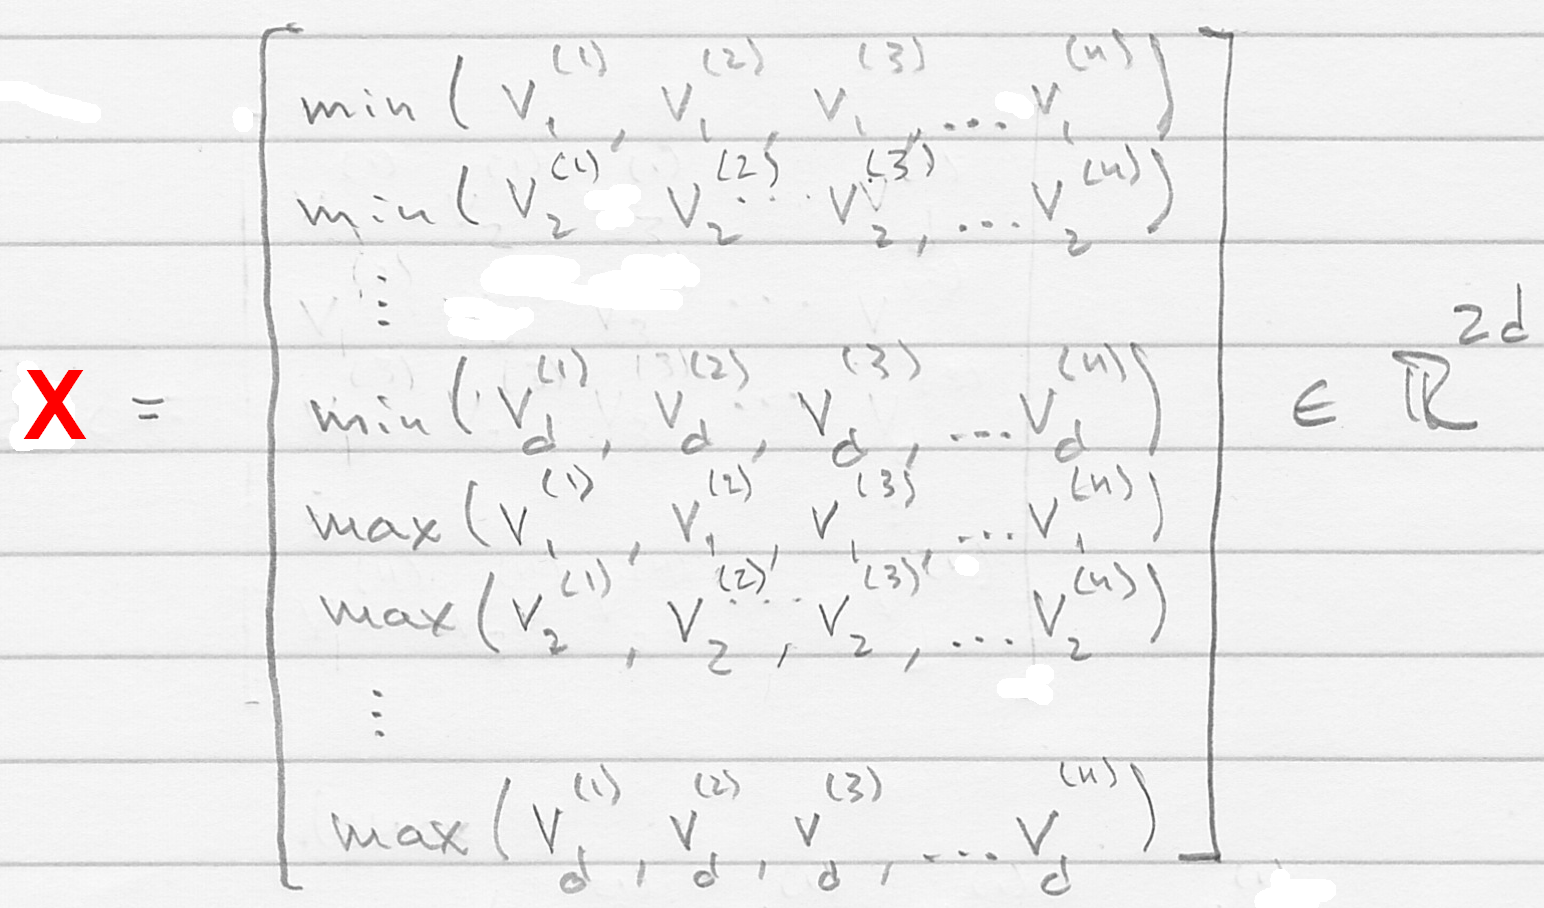 min ( V₁⁽¹⁾, V₁⁽²⁾, V₁⁽³⁾, ... V₁⁽ⁿ⁾ )
min ( V₂⁽¹⁾ V₂⁽²⁾ V₂⁽³⁾, ... V₂⁽ⁿ⁾ )
⋮
X = [ min ( V_d⁽¹⁾, V_d⁽²⁾, V_d⁽³⁾, ... V_d⁽ⁿ⁾ ) ] ∈ ℝ^{2d}
max ( V₁⁽¹⁾, V₁⁽²⁾, V₁⁽³⁾, ... V₁⁽ⁿ⁾ )
max ( V₂⁽¹⁾, V₂⁽²⁾, V₂⁽³⁾, ... V₂⁽ⁿ⁾ )
⋮
max ( V_d⁽¹⁾, V_d⁽²⁾, V_d⁽³⁾, ... V_d⁽ⁿ⁾ )